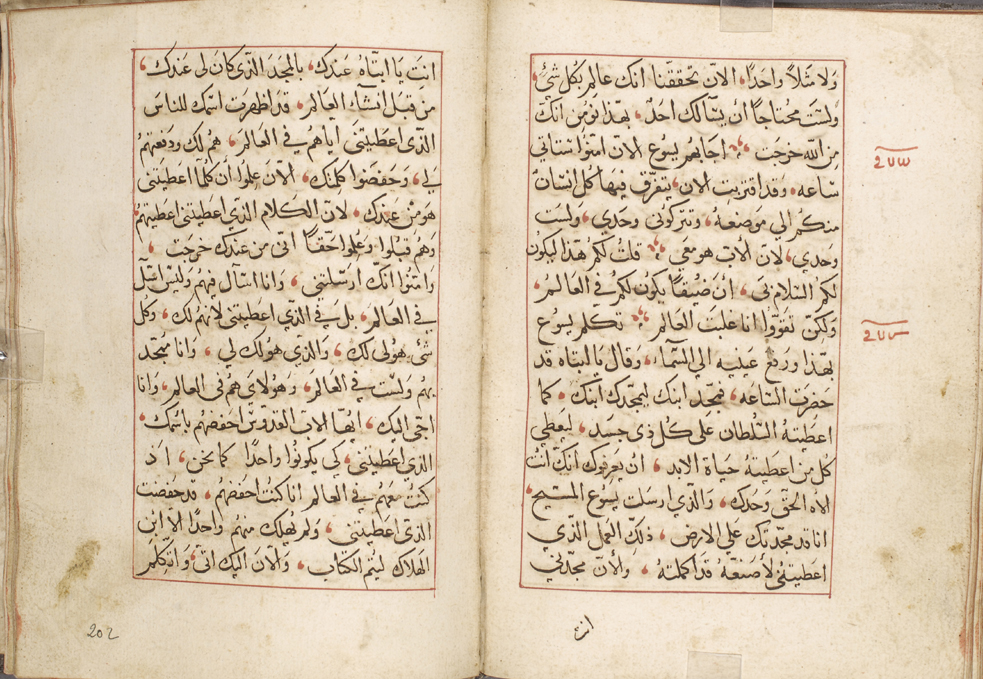 ولا مثلاً واحدًا، الان تحققنا انك عالم بكل شي
ولست محتاجاً ان يسٔالك احد، بهذا نومن انك
من الله خرجت، اجابهم يسوع الان امنوا ستاتي
ساعه، وقد اقتربت الان، يتفرق فيها كل انسان
منكم الي موضعه، وتتركوني وحدي، ولست
وحدي، لان الاب هو معي، قلت لكم هذا ليكون
لكم السلام بي، ان ضيقًا يكون لكم في العالم،
ولكن تقووا انا غلبت العالم، تكلم يسوع
بهذا ورفع عينيه الي السمآء، وقال يا ابتاه قد
حضرت الساعه، فمجد ابنك ليمجدك ابنك، كما
اعطيته السلطان علي كل ذي جسد، ليعطي
كل من اعطيته حياة الابد، ان يعرفوك انك انت
الاه الحق وحدك، والذي ارسلت يسوع المسيح
انا قد مجدتك علي الارض، ذلك العمل الذي
اعطيتني لأصنعه قد اكملته، والأن مجدني
انت
انت يا ابتاه عندك، بالمجد الذي كان لي عندك،
من قبل انشآء العالم، قد اظهرت اسمك للناس
الذي اعطيتني اياهم في العالم، هم لك ودفعتهم
لي، وحفضوا كلمتك، الان علموا ان كلما اعطيتني
هو من عندك، لان الكلام الذي اعطيتني اعطيتهم
وهم قبلوا وعلموا حقًا اني من عندك خرجت،
وامنوا انك ارسلتني، وانا اسٔال فيهم وليس اسٔل
في العالم، بل في الذي اعطيتني لانهم لك، وكل
شي هو لي لك، والذي هو لك لي، وانا ممجد
بهم ولست في العالم، وهولاي هم في العالم، وانا
اجي اليك، ايها الاب القدوس احفضهم باسمك،
الذي اعطيتني، كي يكونوا واحدًا كما نحن، اذ
كنت معهم في العالم انا كنت احفضهم، قد حفضت
الذي اعطيتني، ولم يهلك منهم واحدًا الا ابن
الهلاك ليتم الكتاب، والان اليك اتي، واتكلم
202